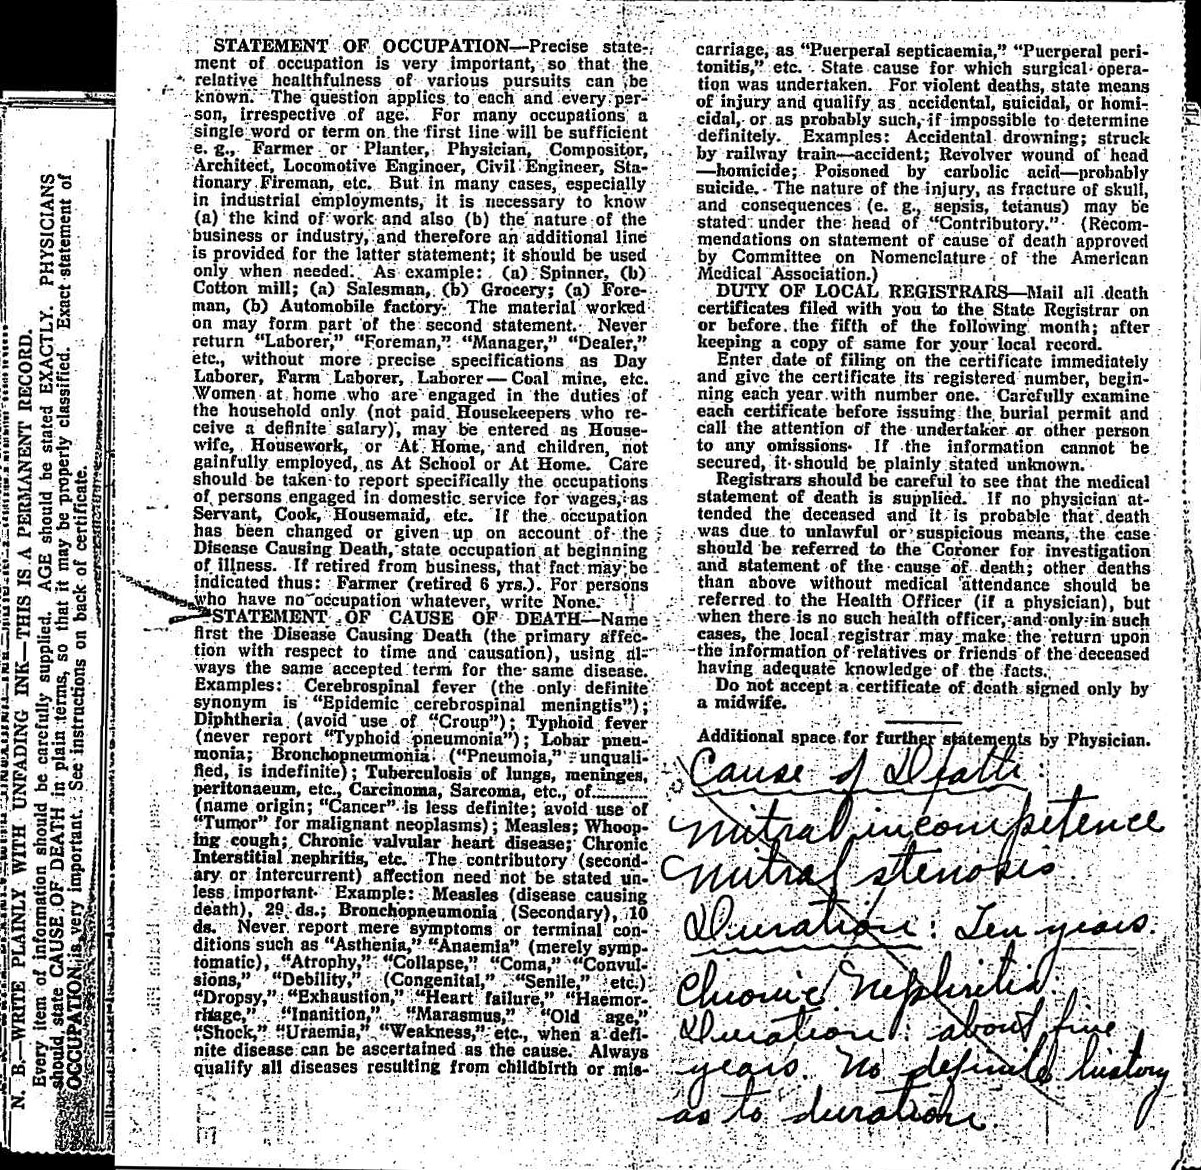 N. B.—WRITE PLAINLY WITH UNFADING INK—THIS IS A PERMANENT RECORD.
Every item of information should be carefully supplied. AGE should be stated EXACTLY. PHYSICIANS
should state CAUSE OF DEATH in plain terms, so that it may be properly classified. Exact statement of
OCCUPATION is very important. See instructions on back of certificate.
STATEMENT OF OCCUPATION—Precise state-
ment of occupation is very important, so that the
relative healthfulness of various pursuits can be
known. The question applies to each and every per-
son, irrespective of age. For many occupations a
single word or term on the first line will be sufficient
e. g., Farmer or Planter, Physician, Compositor,
Architect, Locomotive Engineer, Civil Engineer, Sta-
tionary Fireman, etc. But in many cases, especially
in industrial employments, it is necessary to know
(a) the kind of work and also (b) the nature of the
business or industry, and therefore an additional line
is provided for the latter statement; it should be used
only when needed. As example: (a) Spinner, (b)
Cotton mill; (a) Salesman, (b) Grocery; (a) Fore-
man, (b) Automobile factory. The material worked
on may form part of the second statement. Never
return "Laborer," "Foreman," "Manager," "Dealer,"
etc., without more precise specifications as Day
Laborer, Farm Laborer, Laborer—Coal mine, etc.
Women at home who are engaged in the duties of
the household only (not paid Housekeepers who re-
ceive a definite salary), may be entered as House-
wife, Housework, or At Home, and children, not
gainfully employed, as At School or At Home. Care
should be taken to report specifically the occupations
of persons engaged in domestic service for wages, as
Servant, Cook, Housemaid, etc. If the occupation
has been changed or given up on account of the
Disease Causing Death, state occupation at beginning
of illness. If retired from business, that fact may be
indicated thus: Farmer (retired 6 yrs.). For persons
who have no occupation whatever, write None.
STATEMENT OF CAUSE OF DEATH—Name
first the Disease Causing Death (the primary affec-
tion with respect to time and causation), using al-
ways the same accepted term for the same disease.
Examples: Cerebrospinal fever (the only definite
synonym is "Epidemic cerebrospinal meningtis");
Diphtheria (avoid use of "Croup"); Typhoid fever
(never report "Typhoid pneumonia"); Lobar pneu-
monia; Bronchopneumonia ("Pneumoia," unquali-
fied, is indefinite); Tuberculosis of lungs, meninges,
peritonaeum, etc., Carcinoma, Sarcoma, etc., of..........
(name origin; "Cancer" is less definite; avoid use of
"Tumor" for malignant neoplasms); Measles; Whoop-
ing cough; Chronic valvular heart disease; Chronic
Interstitial nephritis, etc. The contributory (second-
ary or intercurrent) affection need not be stated un-
less important. Example: Measles (disease causing
death), 29 ds.; Bronchopneumonia (Secondary), 10
ds. Never report mere symptoms or terminal con-
ditions such as "Asthenia," "Anaemia" (merely symp-
tomatic), "Atrophy," "Collapse," "Coma," "Convul-
sions," "Debility," (Congenital," "Senile," etc.)
"Dropsy," "Exhaustion," "Heart failure," "Haemor-
rhage," "Inanition," "Marasmus," "Old age,"
"Shock," "Uraemia," "Weakness," etc., when a defi-
nite disease can be ascertained as the cause. Always
qualify all diseases resulting from childbirth or mis-
carriage, as "Puerperal septicaemia," "Puerperal peri-
tonitis," etc. State cause for which surgical opera-
tion was undertaken. For violent deaths, state means
of injury and qualify as accidental, suicidal, or homi-
cidal, or as probably such, if impossible to determine
definitely. Examples: Accidental drowning; struck
by railway train—accident; Revolver wound of head
—homicide; Poisoned by carbolic acid—probably
suicide. The nature of the injury, as fracture of skull,
and consequences (e. g., sepsis, tetanus) may be
stated under the head of "Contributory." (Recom-
mendations on statement of cause of death approved
by Committee on Nomenclature of the American
Medical Association.)
DUTY OF LOCAL REGISTRARS—Mail all death
certificates filed with you to the State Registrar on
or before the fifth of the following month; after
keeping a copy of same for your local record.
Enter date of filing on the certificate immediately
and give the certificate its registered number, begin-
ning each year with number one. Carefully examine
each certificate before issuing the burial permit and
call the attention of the undertaker or other person
to any omissions. If the information cannot be
secured, it should be plainly stated unknown.
Registrars should be careful to see that the medical
statement of death is supplied. If no physician at-
tended the deceased and it is probable that death
was due to unlawful or suspicious means, the case
should be referred to the Coroner for investigation
and statement of the cause of death; other deaths
than above without medical attendance should be
referred to the Health Officer (if a physician), but
when there is no such health officer, and only in such
cases, the local registrar may make the return upon
the information of relatives or friends of the deceased
having adequate knowledge of the facts.
Do not accept a certificate of death signed only by
a midwife.
Additional space for further statements by Physician.
Cause of Death:
Mitral incompetence
Mitral stenosis.
Duration: Ten years.
Chronic Nephritis.
Duration: about five
years. No definite history
as to duration.